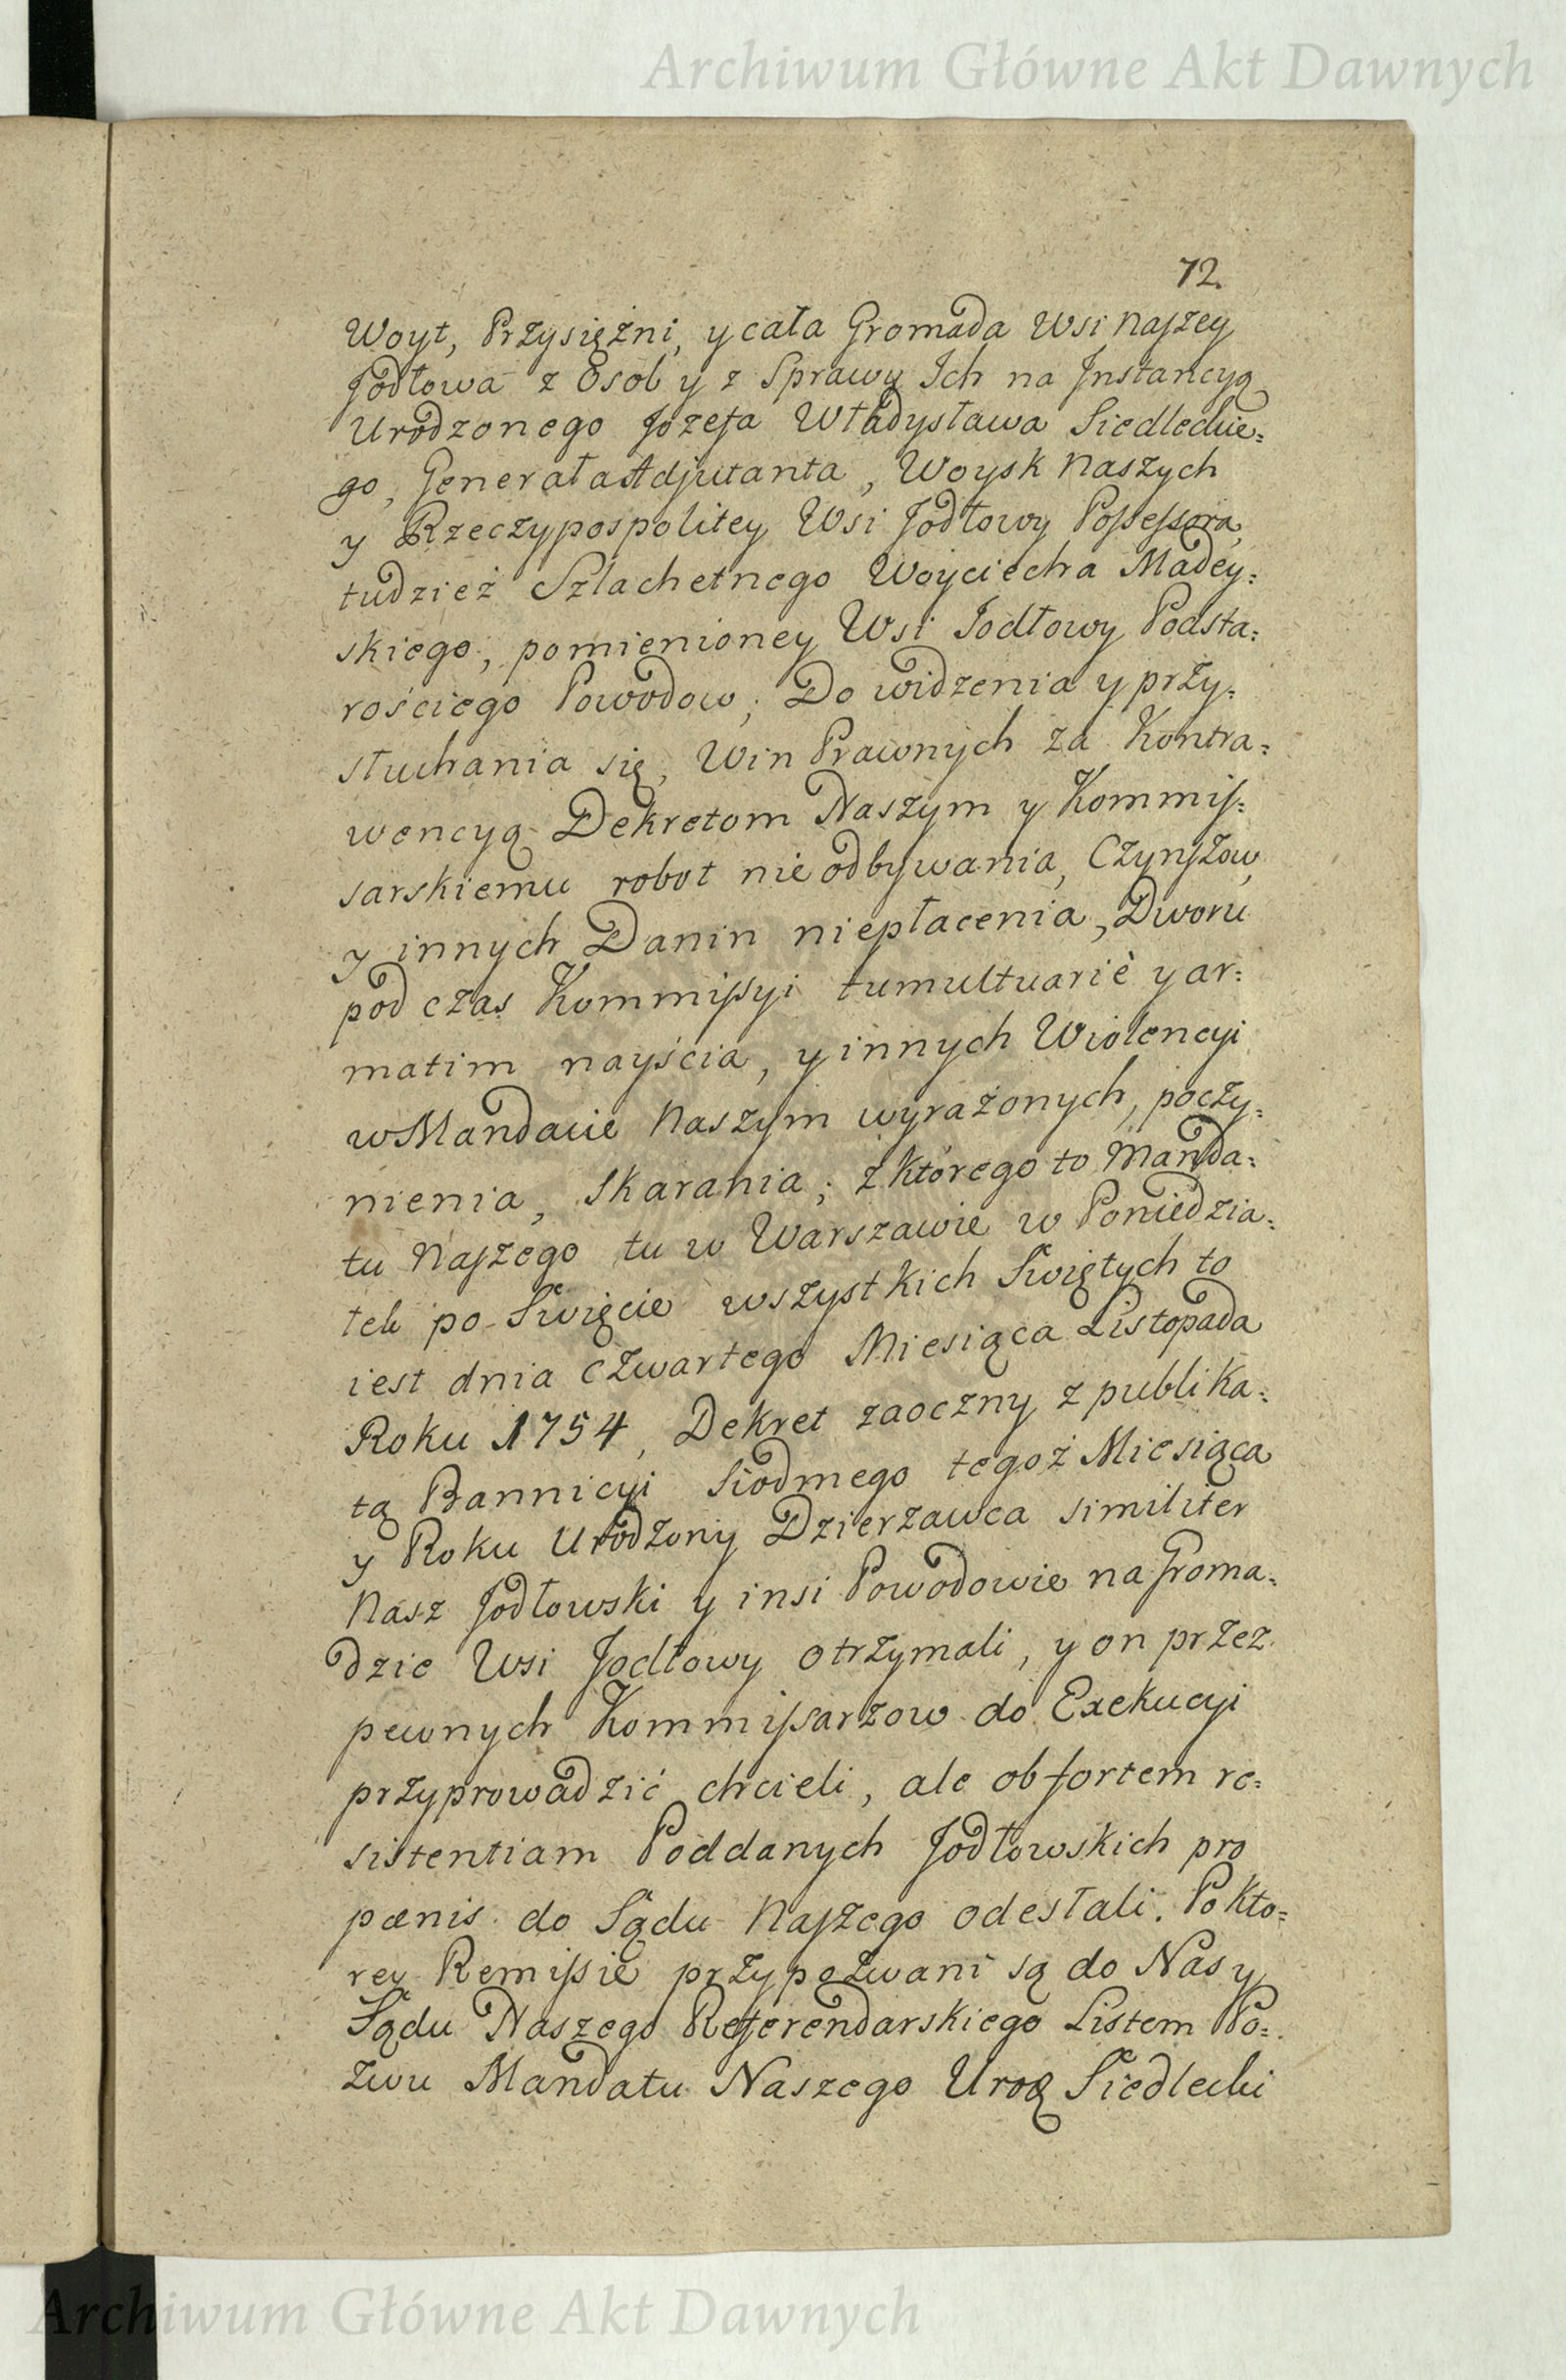 Archiwum Główne Akt Dawnych
72.
Woyt, Przysiężni, y cała Gromada Wsi Naſzey
Jodłowa z Osob y z Sprawy Ich na Jnstancyą
Urodzonego Jozefa Władysława Siedleckie=
go, Generała Adjutanta, Woysk Naszych
y Rzeczypospolitey Wsi Jodłowy Poſseſsora,
tudzież Szlachetnego Woyciecha Madey=
skiego, pomienioney Wsi Jodłowy Podsta=
rościego Powodow; Do widzenia y przy=
słuchania się, Win Prawnych za Kontra=
wencyą Dekretom Naszym y Kommiſ=
sarskiemu robot nie odbywania, Czynſzow,
y innych Danin niepłacenia, Dworu
pod czas Kommiſsyi tumultuariè y ar=
matim nayścia, y innych Wiolencyi
w Mandacie Naszym wyrażonych, poczy=
nienia, skarania; z którego to Manda=
tu Naſzego tu w Warszawie w Poniedzia=
łek po Święcie wszystkich Świętych to
iest dnia Czwartego Miesiąca Listopada
Roku 1754, Dekret zaoczny z publika=
tą Bannicyi Siodmego tegoż Miesiąca
y Roku Urodzony Dzierzawca similiter
Nasz Jodłowski y insi Powodowie na Groma=
dzie Wsi Jodłowy otrzymali, y on przez
pewnych Kommiſsarzow do Exekucyi
przyprowadzić chcieli, ale ob fortem re=
sistentiam Poddanych Jodłowskich pro
pœnis do Sądu Naſzego odesłali. Po kto=
rey Remiſsie przypozwani są do Nas y
Sądu Naszego Referendarskiego Listem Po=
zwu Mandatu Naszego Urod Siedlecki
Archiwum Główne Akt Dawnych